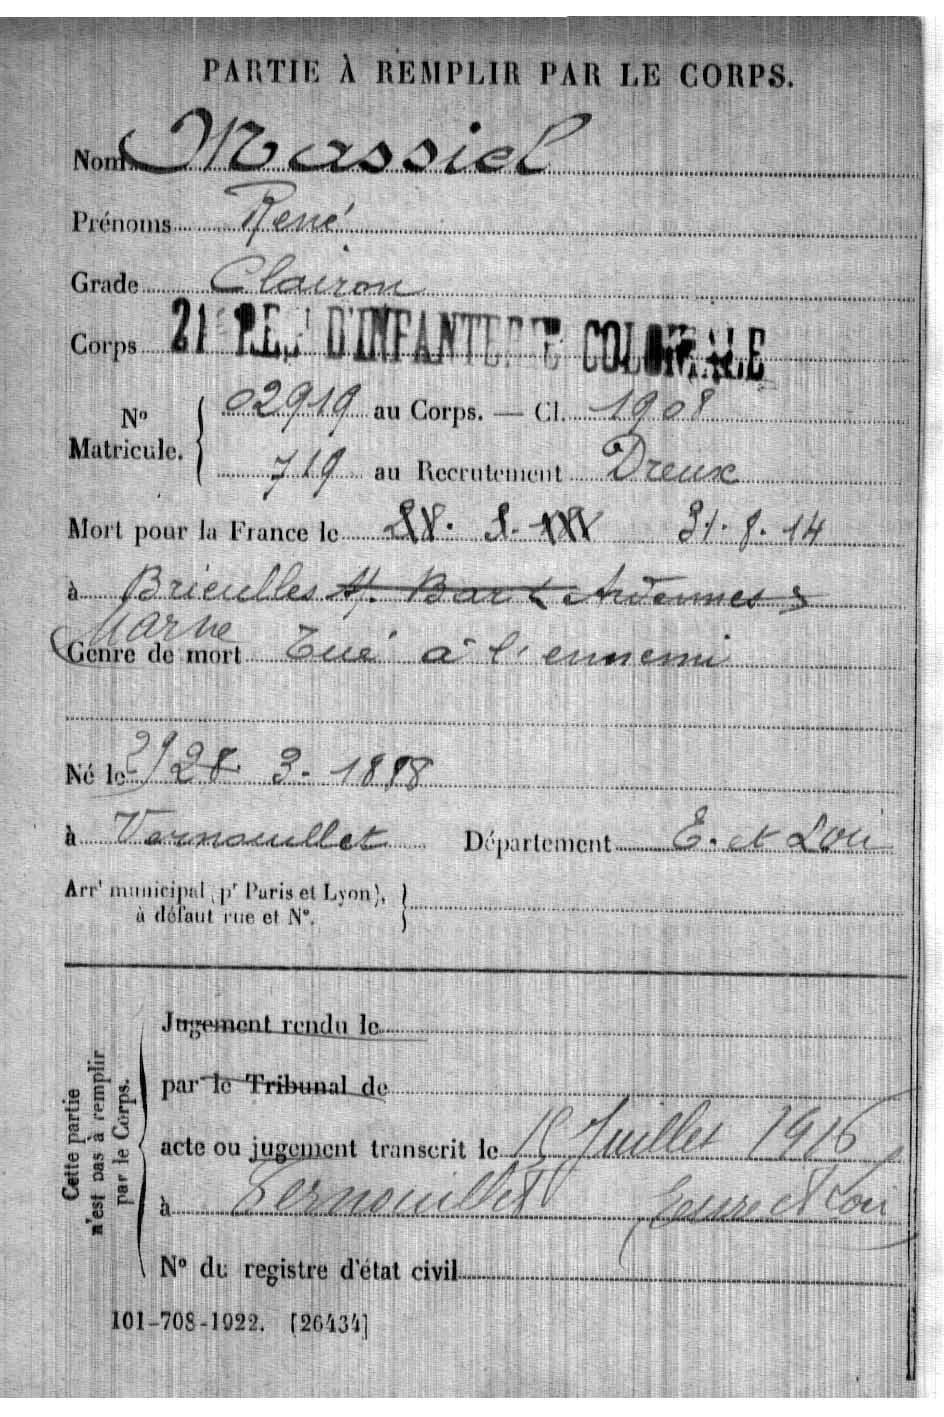 PARTIE À REMPLIR PAR LE CORPS.
Nom Massiel
Prénoms René
Grade Clairon
Corps 21 D'INFANTERIE COLONIALE
N° Matricule. { 02919 au Corps. — Cl. 1908
719 au Recrutement Dreux
Mort pour la France le 31.8.14
à Brieulles s/. Bar Ardennes
Marne
Genre de mort Tué à l'ennemi
Né le 29 28. 3. 1888
à Vernouillet Département E. et Loir
Arrᵗ municipal (pʳ Paris et Lyon), à défaut rue et N°. }
Cette partie n'est pas à remplir par le Corps.
Jugement rendu le
par le Tribunal de
acte ou jugement transcrit le 15 Juillet 1916
à Vernouillet Eure et Loir
N° du registre d'état civil
101-708-1922. [26434]